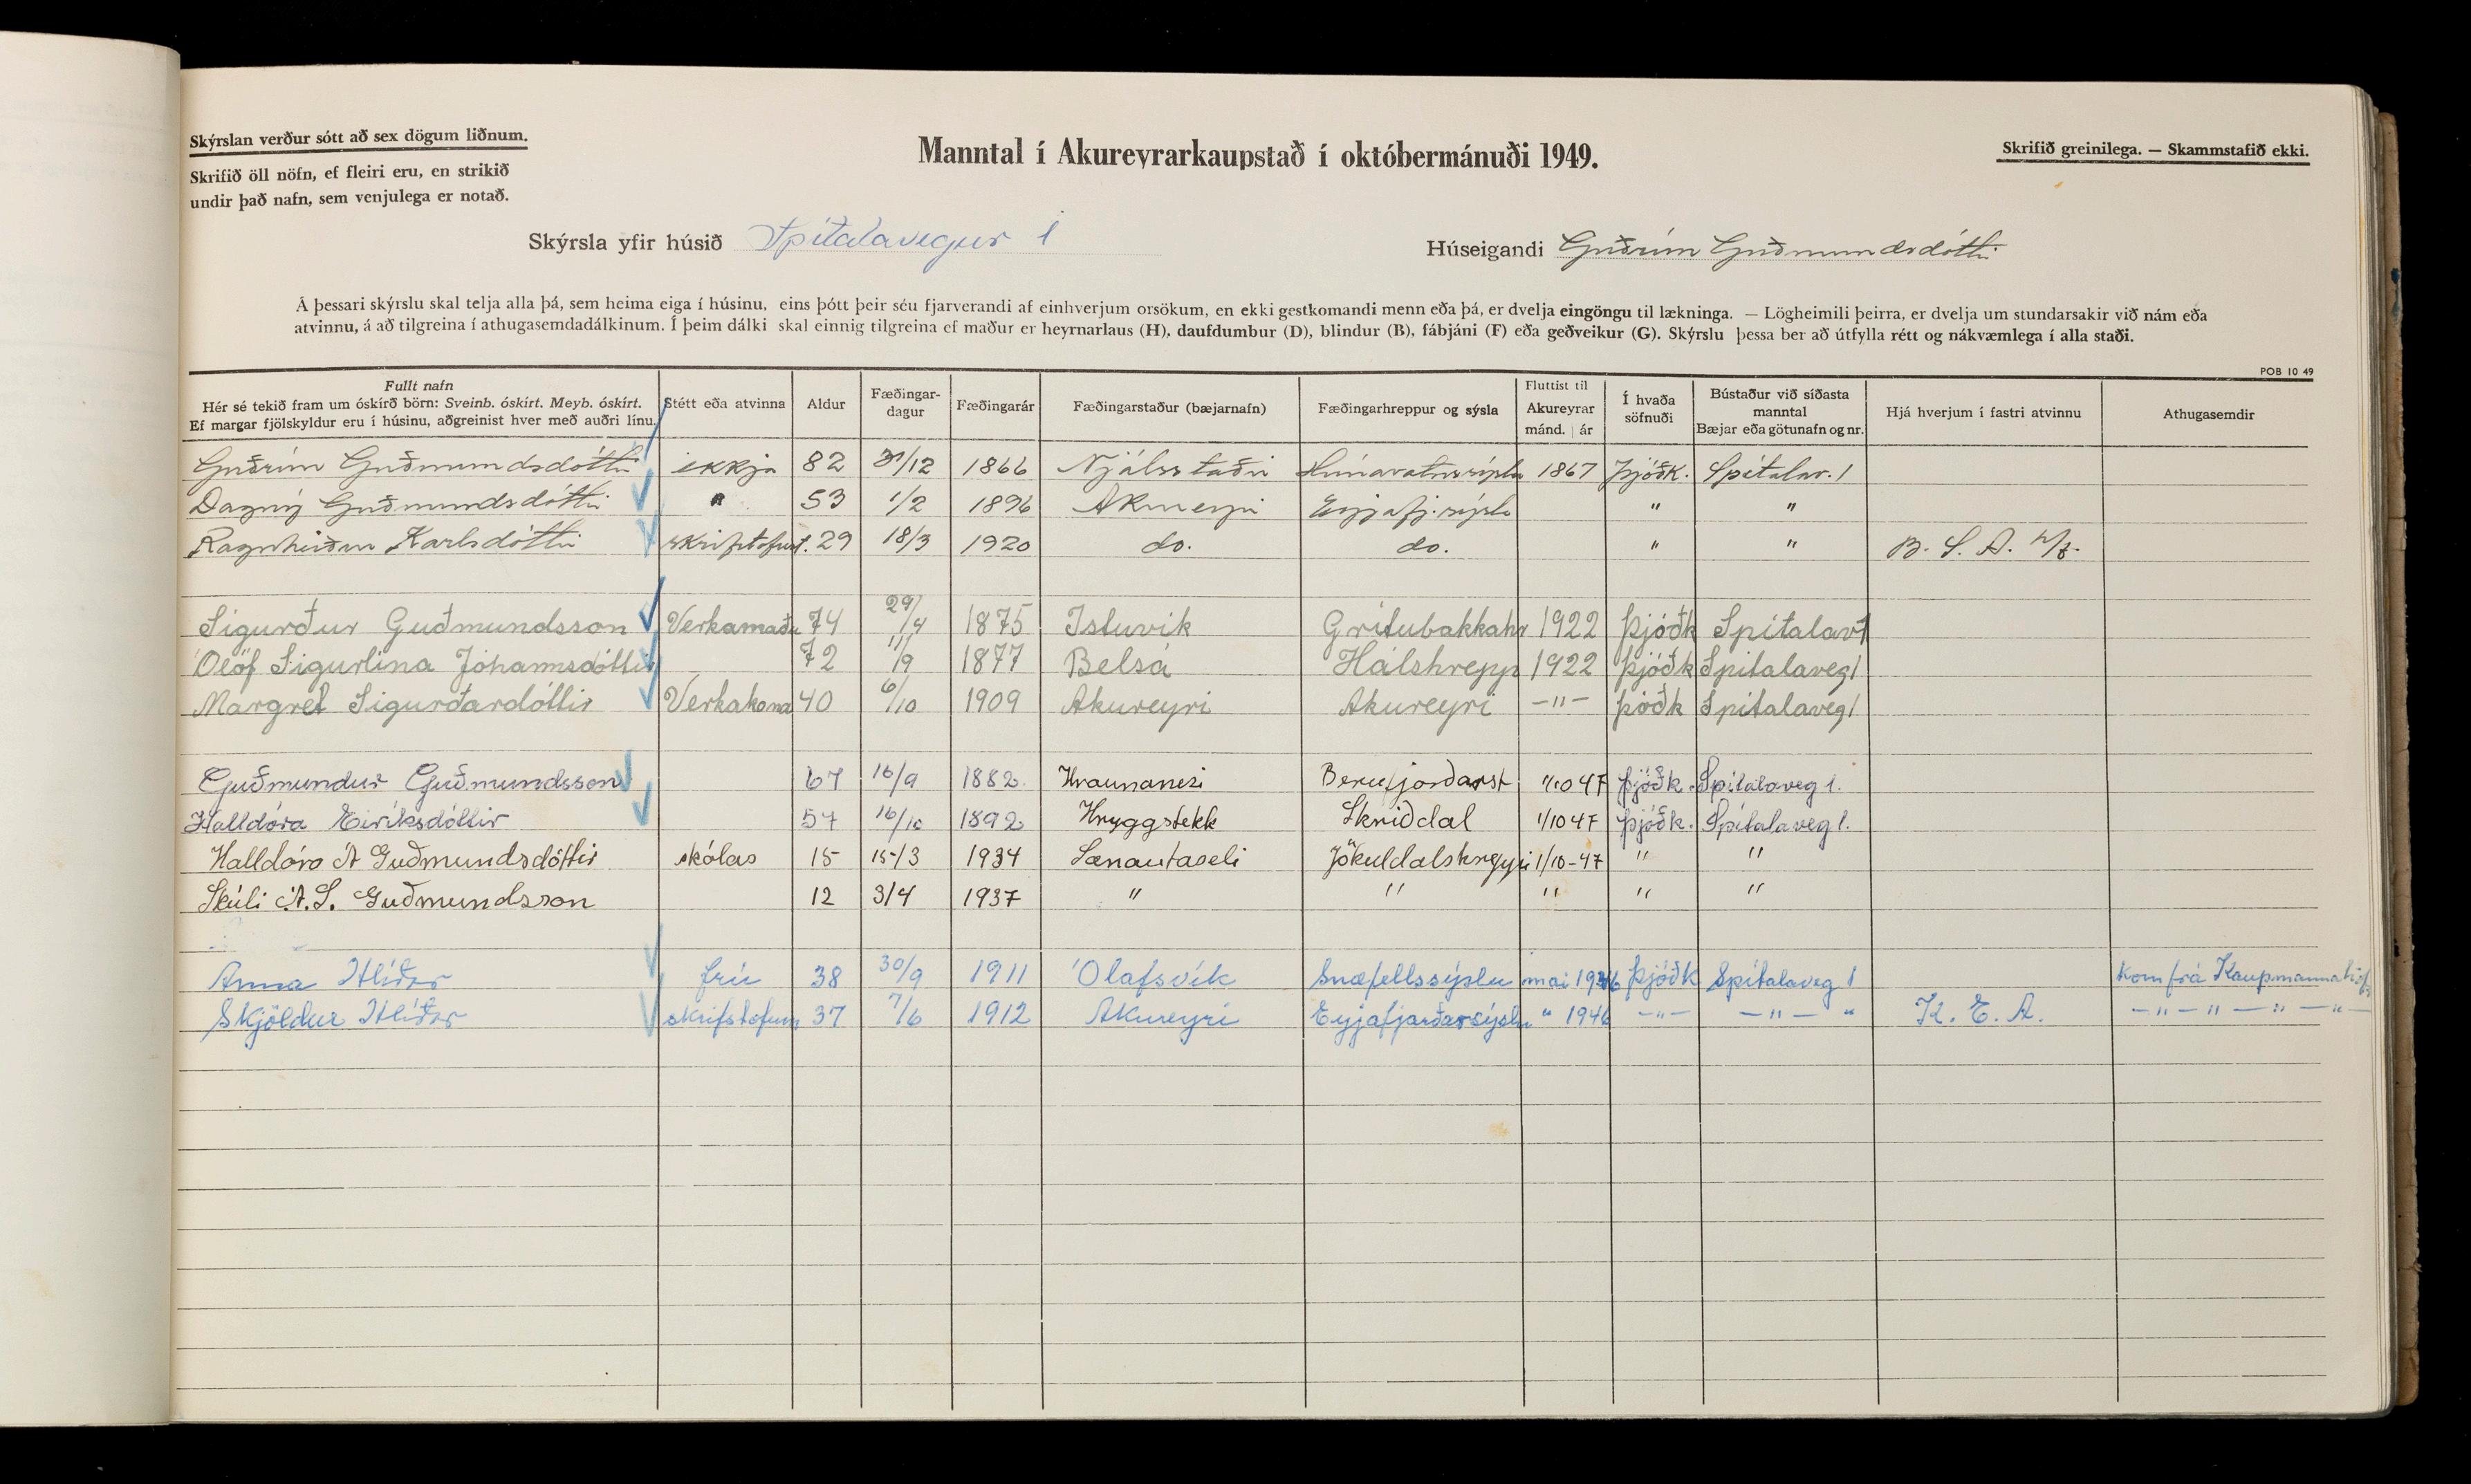 Skýrslan verður sótt að sex dögum liðnum.
Skrifið öll nöfn, ef fleiri eru, en strikið
undir það nafn, sem venjulega er notað.
Manntal í Akureyrarkaupstað í októbermánuði 1949.
Skrifið greinilega. — Skammstafið ekki.
Skýrsla yfir húsið Spítalavegur 1
Húseigandi Guðrún Guðmundsdóttir
Á þessari skýrslu skal telja alla þá, sem heima eiga í húsinu, eins þótt þeir séu fjarverandi af einhverjum orsökum, en ekki gestkomandi menn eða þá, er dvelja eingöngu til lækninga. — Lögheimili þeirra, er dvelja um stundarsakir við nám eða
atvinnu, á að tilgreina í athugasemdadálkinum. Í þeim dálki skal einnig tilgreina ef maður er heyrnarlaus (H), daufdumbur (D), blindur (B), fábjáni (F) eða geðveikur (G). Skýrslu þessa ber að útfylla rétt og nákvæmlega í alla staði.
POB 10 49
Fullt nafn
Hér sé tekið fram um óskírð börn: Sveinb. óskírt. Meyb. óskírt.
Ef margar fjölskyldur eru í húsinu, aðgreinist hver með auðri línu.
Stétt eða atvinna
Aldur
Fæðingar-
dagur
Fæðingarár
Fæðingarstaður (bæjarnafn)
Fæðingarhreppur og sýsla
Fluttist til
Akureyrar
mánd. | ár
Í hvaða
söfnuði
Bústaður við síðasta
manntal
Bæjar eða götunafn og nr.
Hjá hverjum í fastri atvinnu
Athugasemdir
Guðrún Guðmundsdóttir ekkja 82 31/12 1866 Njálsstaðir Húnavatnssýslu 1867 Þjóðk. Spítalav. 1
Dagný Guðmundsdóttir " 53 1/2 1896 Akureyri Eyjafj.sýslu " "
Ragnheiður Karlsdóttir skrifstofust. 29 18/3 1920 do. do. " " B. S. A. h/f.
Sigurður Guðmundsson Verkamaður 74 29/4 1875 Istuvik Grítubakkahr 1922 Þjóðk Spítalav 1
Ólöf Sigurlína Jóhannsdóttir 72 11/9 1877 Belsá Hálshrepp 1922 Þjóðk Spítalaveg 1
Margret Sigurðardóttir Verkakona 40 6/10 1909 Akureyri Akureyri —"— þóðk Spítalaveg 1
Guðmundur Guðmundsson 67 16/9 1882 Hraunanesi Berufjorðarst 1/10 47 þjóðk. Spítalaveg 1.
Halldóra Eiríksdóttir 57 16/10 1892 Hryggstekk Skriðdal 1/10 47 þjóðk. Spítalaveg 1.
Halldóra Á Guðmundsdóttir skólas 15 15/3 1934 Sænautaseli Jökuldalshreppi 1/10-47 " "
Skúli Á. S. Guðmundsson 12 3/4 1937 " " " " "
Anna Hlíðar frú 38 30/9 1911 Ólafsvík Snæfellssýslu mai 1946 þjóðk Spítalaveg 1 kom frá Kaupmannahöfn
Skjöldur Hlíðar skrifstofum 37 7/6 1912 Akureyri Eyjafjarðarsýslu " 1946 —"— —"— " K. E. A. —"—"—"—"—